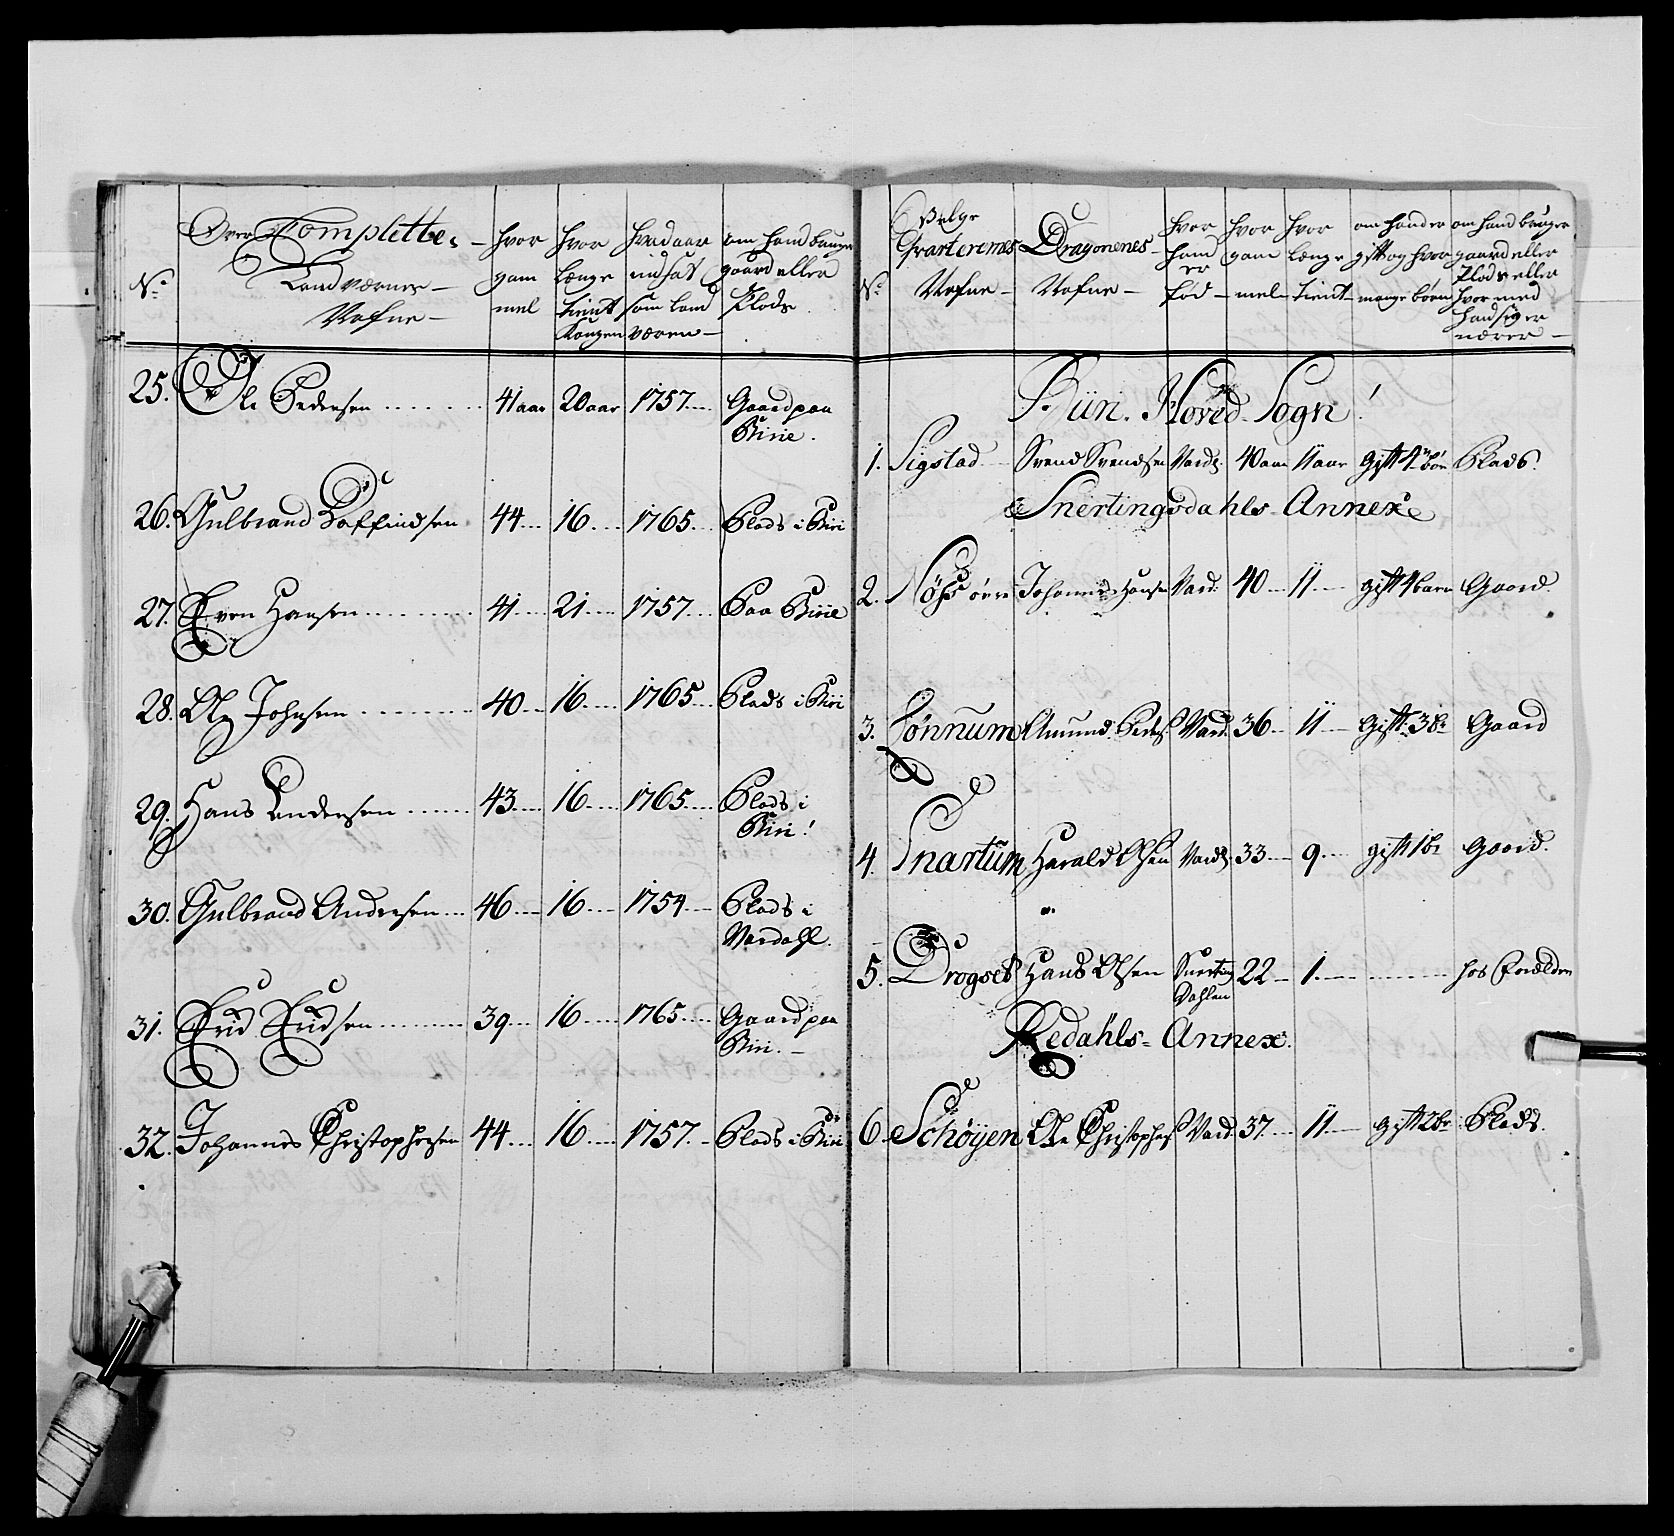 Over Completter
Land værnes
Nafne
No
hvor gam mel
hvor længe tient Kongen
hvad aar indsat som land væren
om hand bruger gaard eller Plads
25. Ole Pedersen 41 aar 20 aar 1757 Gaard paa
Birie.
26. Gulbrand Toffindsen 44 16 1765 Plads i Biri
27. Even Hansen 41 21 1757 Paa Birie
28. Ole Johnsen 40 16 1765 Plads i Biri
29. Hans Andersen 43 16 1765 Plads i
Biri
30. Gulbrand Andersen 46 16 1754 Plads i
Vardahl.
31. 39 16 1765 Gaard paa
Biri.
32. Johannes Christophersen 44 16 1757 Plads i Biri
No
Qvarterernes
Nafne
Dragonenes
Nafne
hvor hand er fød
hvor gam mel
hvor længe tient
om hand er gift og hvor mange børn
om hand bruger gaard eller Plads eller hvor med hand sig er nærer
Hoved Sogn
1. Sigstad Svend Svendsen Vard. 40 aar 11 aar gift 4 bør Plads.
Snertingdahls Annex
2. Johannes Hansen Vard. 40 11 gift 4 barn Gaard.
3. Amund Peders. Vard. 36 11 gift 3 b. Gaard
4. Snartum Harald Olsen Vard. 33 9 gift 1 b. gaard.
5. Drogset Hans Olsen Snerting 22 1 hos Forældre
Dahlen
Redahls Annex.
6. Schøyen Ole Christophers. Vard. 37 11 gift 2 b. Plads.